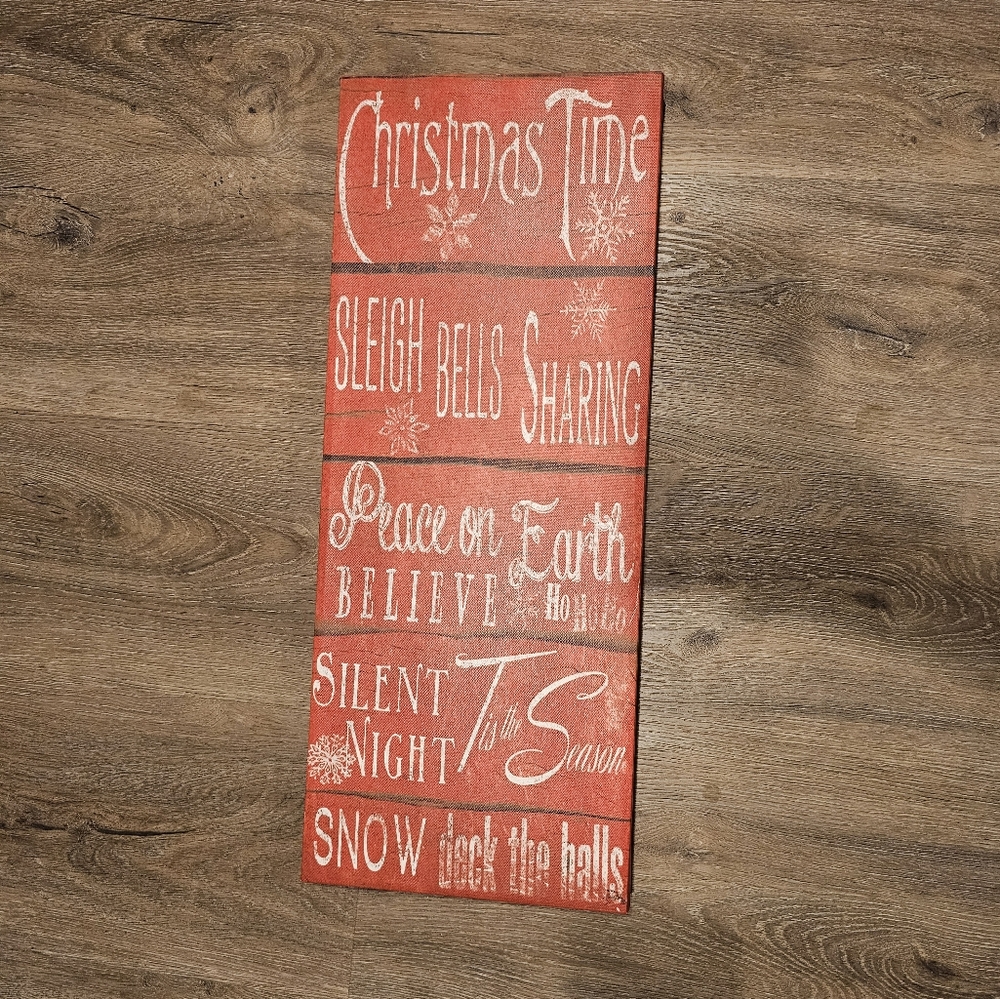 Christmas Time
SLEIGH BELLS SHARING
Peace on Earth
BELIEVE Ho Ho Ho
SILENT NIGHT
Tis the Season
SNOW deck the halls